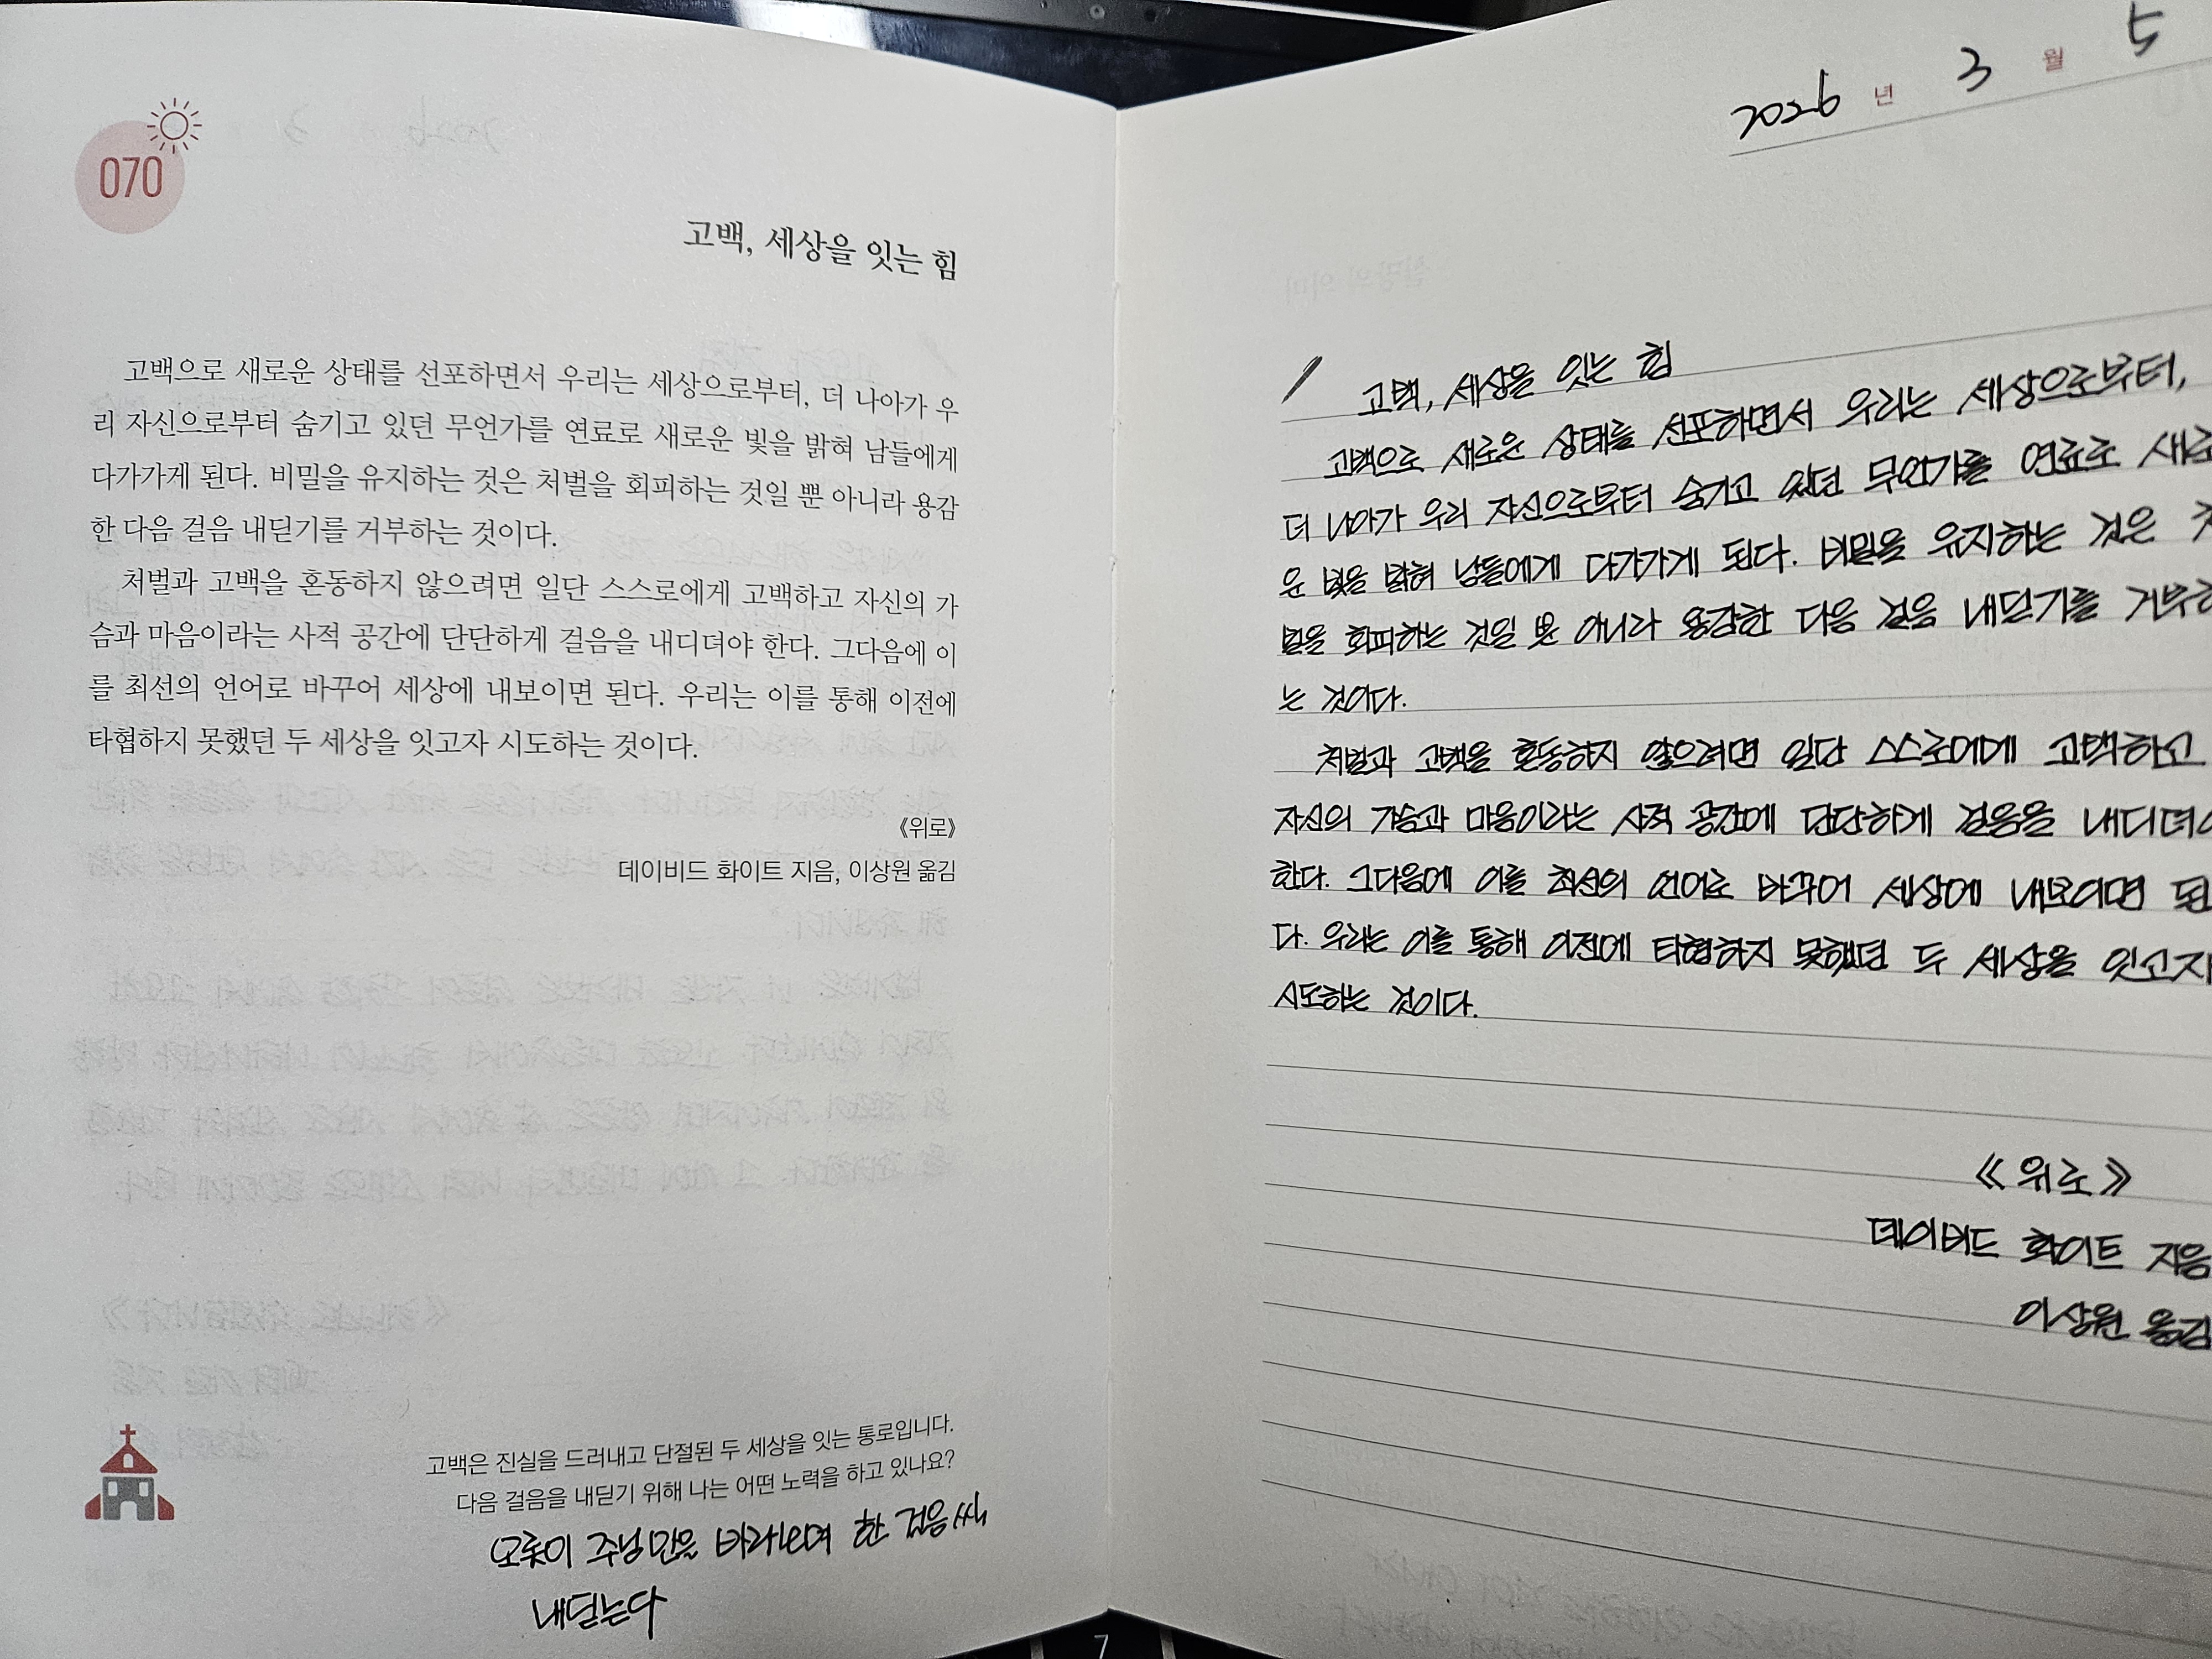 070
고백, 세상을 잇는 힘
고백으로 새로운 상태를 선포하면서 우리는 세상으로부터, 더 나아가 우
리 자신으로부터 숨기고 있던 무언가를 연료로 새로운 빛을 밝혀 남들에게
다가가게 된다. 비밀을 유지하는 것은 처벌을 회피하는 것일 뿐 아니라 용감
한 다음 걸음 내딛기를 거부하는 것이다.
처벌과 고백을 혼동하지 않으려면 일단 스스로에게 고백하고 자신의 가
슴과 마음이라는 사적 공간에 단단하게 걸음을 내디뎌야 한다. 그다음에 이
를 최선의 언어로 바꾸어 세상에 내보이면 된다. 우리는 이를 통해 이전에
타협하지 못했던 두 세상을 잇고자 시도하는 것이다.
《위로》
데이비드 화이트 지음, 이상원 옮김
고백은 진실을 드러내고 단절된 두 세상을 잇는 통로입니다.
다음 걸음을 내딛기 위해 나는 어떤 노력을 하고 있나요?
오롯이 주님만을 바라보며 한 걸음씩
내딛는다
2026 년 3 월 5
고백, 세상을 잇는 힘
고백으로 새로운 상태를 선포하면서 우리는 세상으로부터,
더 나아가 우리 자신으로부터 숨기고 있던 무언가를 연료로 새로
운 빛을 밝혀 남들에게 다가가게 된다. 비밀을 유지하는 것은
벌을 회피하는 것일 뿐 아니라 용감한 다음 걸음 내딛기를 거부하
는 것이다.
처벌과 고백을 혼동하지 않으려면 일단 스스로에게 고백하고
자신의 가슴과 마음이라는 사적 공간에 단단하게 걸음을 내디뎌야
한다. 그다음에 이를 최선의 언어로 바꾸어 세상에 내보이면 된
다. 우리는 이를 통해 이전에 타협하지 못했던 두 세상을 잇고자
시도하는 것이다.
《위로》
데이비드 화이트 지음
이상원 옮김
7